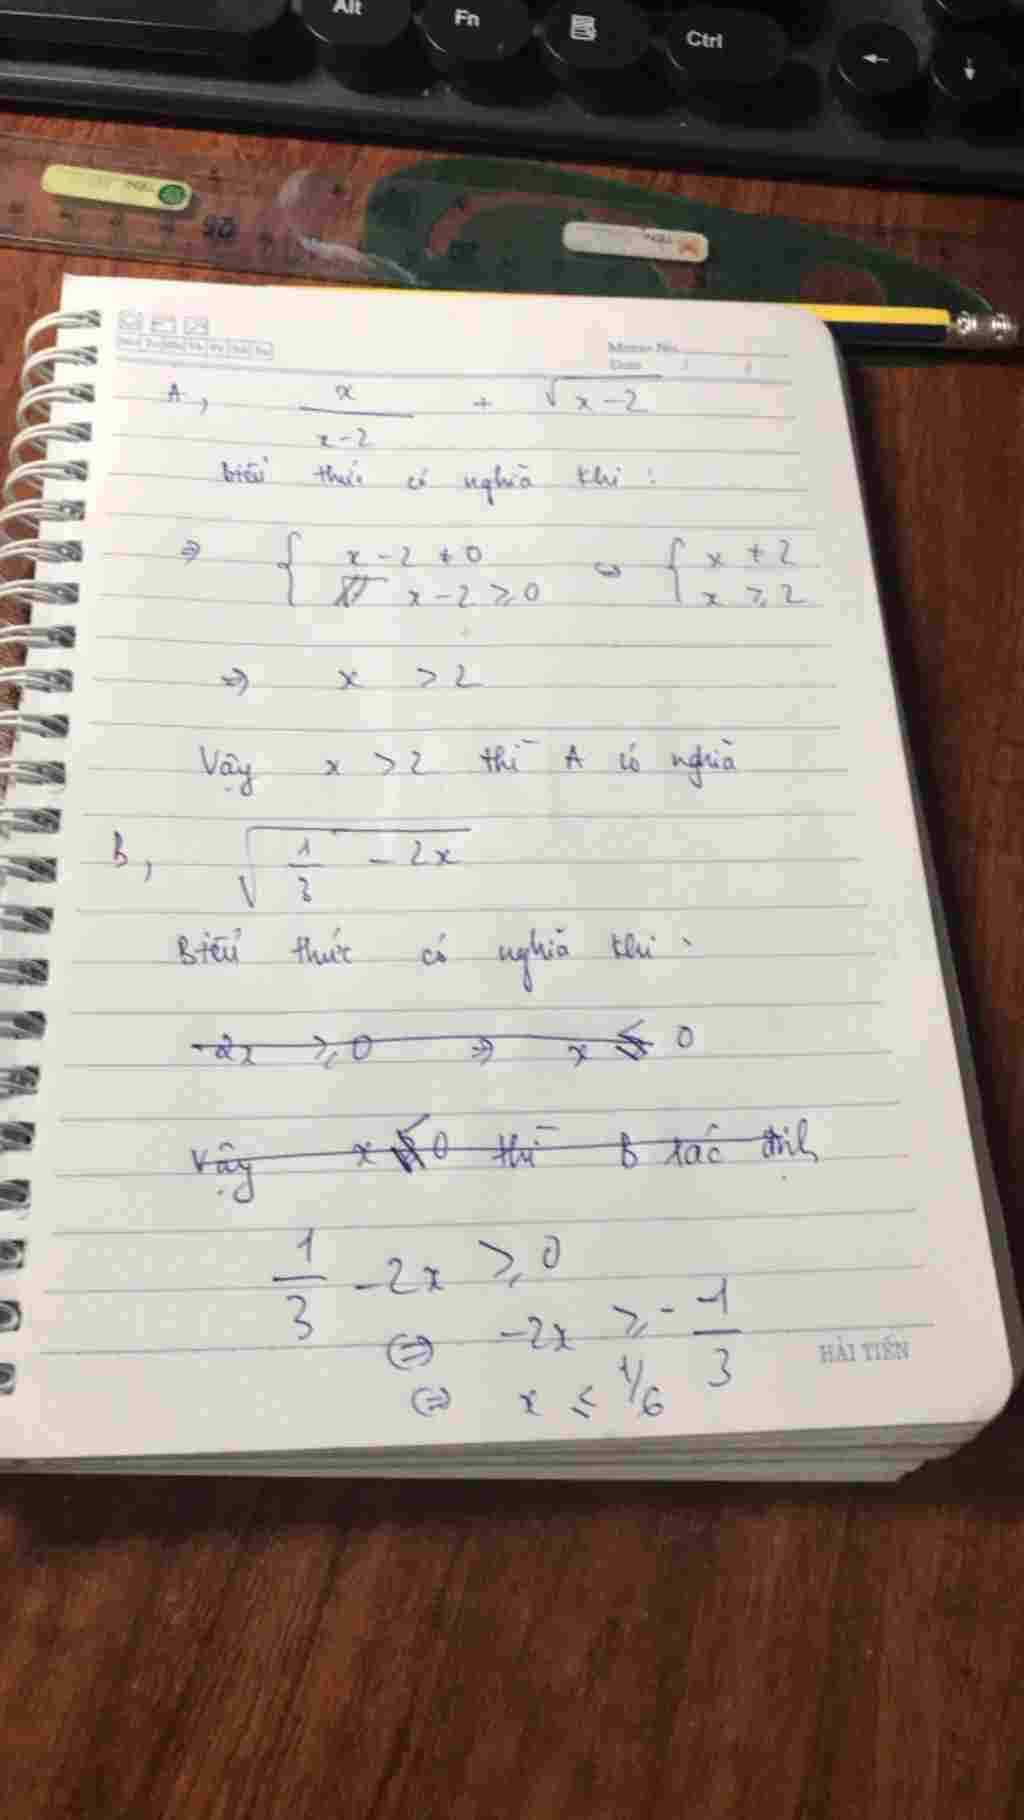 Alt Fn Ctrl
Memo No.
Date / /
A, x/(x-2) + √(x-2)
biểu thức có nghĩa khi :
⇒ { x - 2 ≠ 0 ⇔ { x ≠ 2
x - 2 ≥ 0 x ≥ 2
⇒ x > 2
Vậy x > 2 thì A có nghĩa
B, √(1/3 - 2x)
Biểu thức có nghĩa khi :
-2x ≥ 0 ⇒ x ≤ 0
Vậy x ≤ 0 thì B xác định
1/3 - 2x ≥ 0
⇔ -2x ≥ - -1/3
⇔ x ≤ 1/6
HẢI TIẾN